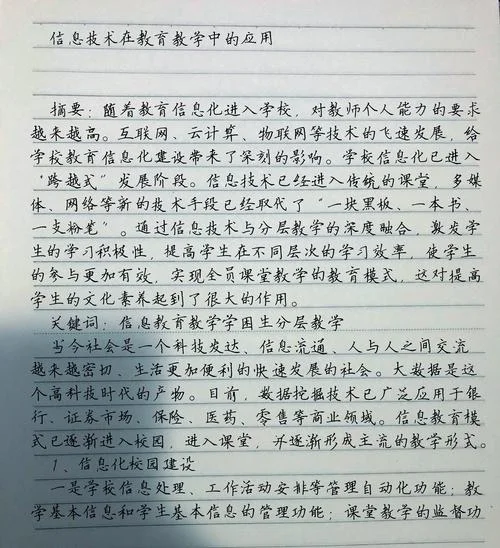 信息技术在教育教学中的应用
摘要：随着教育信息化进入学校，对教师个人能力的要求
越来越高。互联网、云计算、物联网等技术的飞速发展，给
学校教育信息化建设带来了深刻的影响。学校信息化已进入
“跨越式”发展阶段。信息技术已经进入传统的课堂，多媒
体、网络等新的技术手段已经取代了“一块黑板、一本书、
一支粉笔”。通过信息技术与分层教学的深度融合，激发学
生的学习积极性，提高学生在不同层次的学习效率，使学生
的参与更加有效，实现全员课堂教学的教育模式，这对提高
学生的文化素养起到了很大的作用。
关键词：信息教育教学学困生分层教学
当今社会是一个科技发达、信息流通、人与人之间交流
越来越密切、生活更加便利的快速发展的社会。大数据是这
个高科技时代的产物。目前，数据挖掘技术已广泛应用于银
行、证券市场、保险、医药、零售等商业领域。信息教育模
式已逐渐进入校园，进入课堂，并逐渐形成主流的教学形式。
1、信息化校园建设
一是学校信息处理、工作活动安排等管理自动化功能；教
学基本信息和学生基本信息的管理功能；课堂教学的监督功